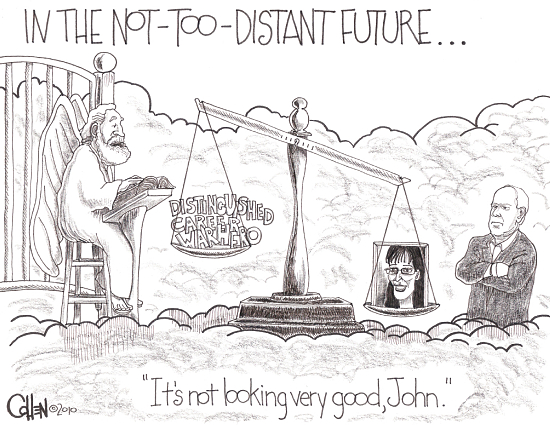 IN THE NOT-TOO-DISTANT FUTURE...
DISTINGUISHED
CAREER
WAR HERO
"It's not looking very good, John."
COHEN ©2010